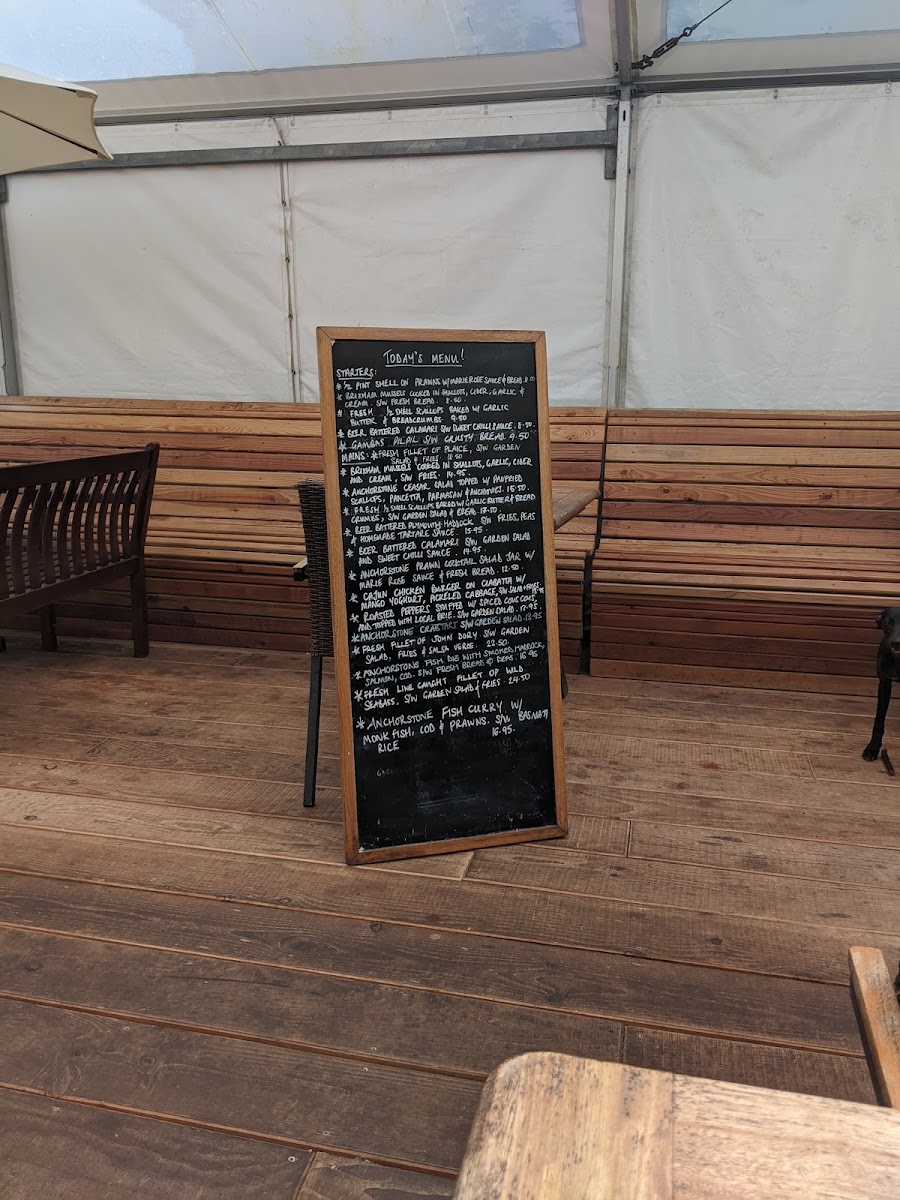 TODAY'S MENU!
STARTERS:
* 1/2 PINT SHELL ON PRAWNS W/ MARIEROSE SAUCE & BREAD. 8.50
* BRIXHAM MUSSELS COOKED IN SHALLOTS, CIDER, GARLIC &
CREAM. S/W FRESH BREAD. 8.50.
* FRESH 1/2 SHELL SCALLOPS BAKED W/ GARLIC
BUTTER & BREADCRUMBS 9.50
* BEER BATTERED CALAMARI S/W SWEET CHILLI SAUCE. 8.50.
* GAMBAS PILPIL S/W CRUSTY BREAD. 9.50
MAINS: * FRESH FILLET OF PLAICE, S/W GARDEN
SALAD & FRIES.
* BRIXHAM MUSSELS COOKED IN SHALLOTS, GARLIC, CIDER
AND CREAM, S/W FRIES. 14.95.
* ANCHORSTONE CEASAR SALAD TOPPED W/ PANFRIED
SCALLOPS, PANCETTA, PARMASAN & ANCHOVIES. 15.50.
* FRESH 1/2 SHELL SCALLOPS BAKED W/ GARLIC BUTTER & BREAD
CRUMBS, S/W GARDEN SALAD & BREAD. 17.50.
* BEER BATTERED PLYMOUTH HADDOCK S/W FRIES, PEAS
& HOMEMADE TARTARE SAUCE. 15.95.
* BEER BATTERED CALAMARI S/W GARDEN SALAD
AND SWEET CHILLI SAUCE. 14.95.
* ANCHORSTONE PRAWN COCKTAIL SALAD JAR W/
MARIE ROSE SAUCE & FRESH BREAD. 12.50
* CAJUN CHICKEN BURGER ON CIABATTA W/
MANGO YOGHURT, PICKLED CABBAGE, S/W SALAD & FRIES.
* ROASTED PEPPERS STUFFED W/ SPICED COUS COUS,
AND TOPPED WITH LOCAL BRIE. S/W GARDEN SALAD. 17.95.
* ANCHORSTONE CRABTART S/W GARDEN SALAD. 13.95
* FRESH FILLET OF JOHN DORY S/W GARDEN
SALAD, FRIES & SALSA VERDE. 22.50.
* ANCHORSTONE FISH PIE WITH SMOKED HADDOCK,
SALMON, COD. S/W FRESH BREAD & PEAS. 16.95
* FRESH LINE CAUGHT FILLET OF WILD
SEABASS. S/W GARDEN SALAD & FRIES. 24.50
* ANCHORSTONE FISH CURRY W/
MONKFISH, COD & PRAWNS. S/W BASMATI
RICE 16.95.